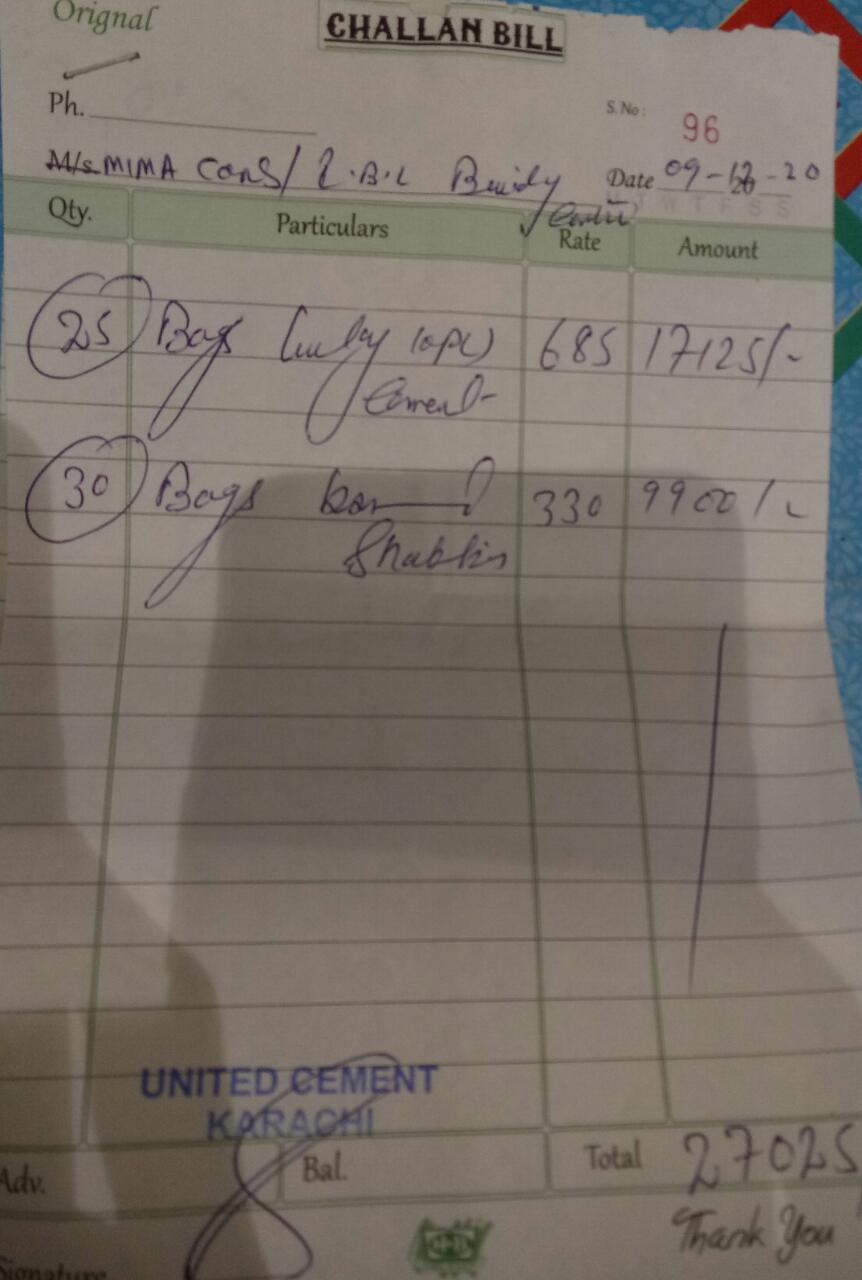 Orignal
CHALLAN BILL
Ph.
S. No : 96
M/s. MIMA Cons/ I.B.L
Date 09-12-20
T W T F S S
Qty. Particulars Rate Amount
25 Bags Lucky (opc) 685 17125/-
Cement
30 Bags 330 9900/-
UNITED CEMENT
KARACHI
Adv. Bal. Total 27025
Thank You
Signature